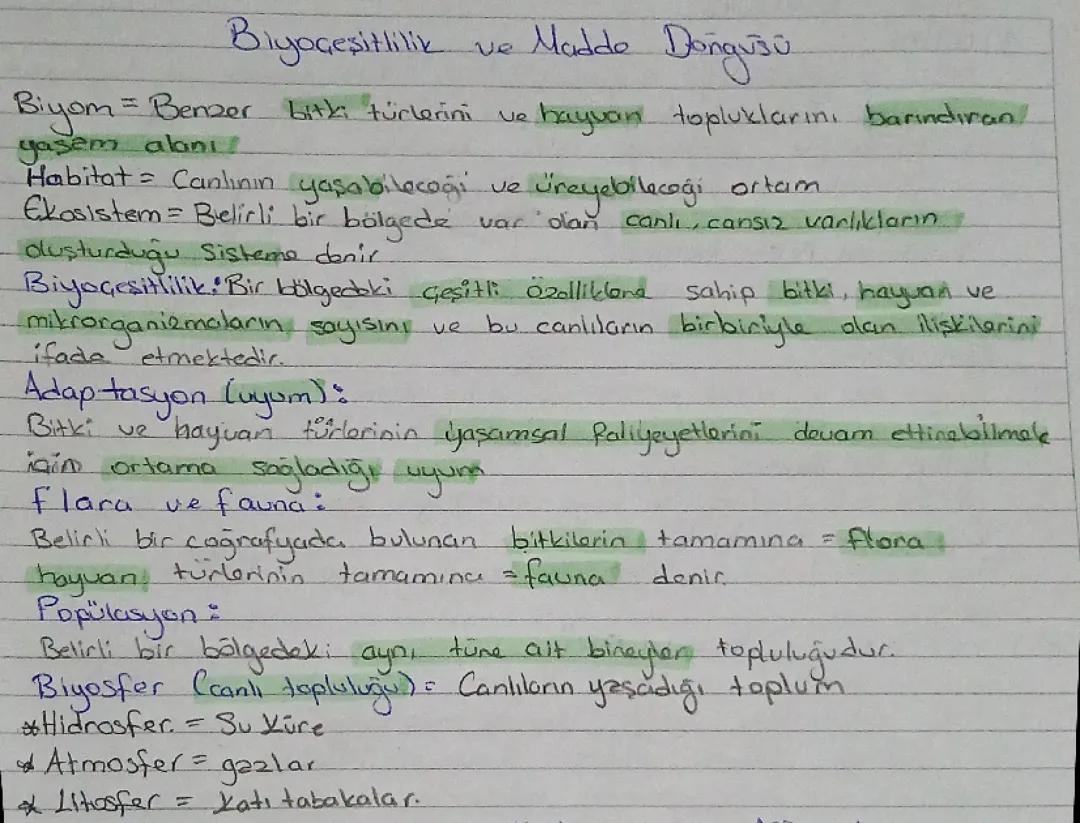 Biyoçeşitlilik ve Madde Döngüsü
Biyom = Benzer bitki türlerini ve hayvan topluklarını barındıran
yaşam alanı
Habitat = Canlının yaşabileceği ve üreyebileceği ortam
Ekosistem = Belirli bir bölgede var olan canlı, cansız varlıkların
oluşturduğu sisteme denir
Biyoçeşitlilik: Bir bölgedeki çeşitli özelliklere sahip bitki, hayvan ve
mikrorganizmaların sayısını ve bu canlıların birbiriyle olan ilişkilerini
ifade etmektedir.
Adaptasyon (uyum):
Bitki ve hayvan türlerinin yaşamsal faliyeyetlerini devam ettirebilmek
için ortama sağladığı uyum
flara ve fauna:
Belirli bir coğrafyada bulunan bitkilerin tamamına = flora
hayvan türlerinin tamamına = fauna denir.
Popülasyon:
Belirli bir bölgedeki aynı türe ait bireyler topluluğudur.
Biyosfer (canlı topluluğu) = Canlıların yaşadığı toplum
*Hidrosfer. = Su Küre
* Atmosfer = gazlar
* Litosfer = Katı tabakalar.